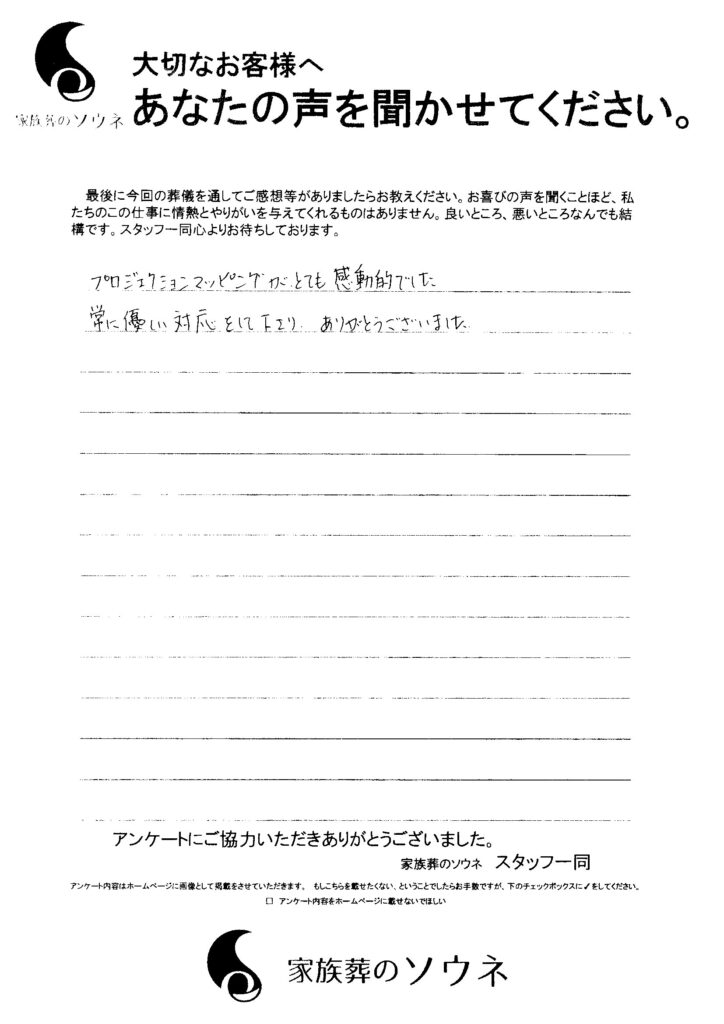 大切なお客様へ
家族葬のソウネ
あなたの声を聞かせてください。
最後に今回の葬儀を通してご感想等がありましたらお教えください。お喜びの声を聞くことほど、私
たちのこの仕事に情熱とやりがいを与えてくれるものはありません。良いところ、悪いところなんでも結
構です。スタッフ一同心よりお待ちしております。
プロジェクションマッピングが、とても感動的でした
常に優しい対応をして下さり、ありがとうございました
アンケートにご協力いただきありがとうございました。
家族葬のソウネ スタッフ一同
アンケート内容はホームページに画像として掲載をさせていただきます。 もしこちらを載せたくない、ということでしたらお手数ですが、下のチェックボックスに✓をしてください。
□ アンケート内容をホームページに載せないでほしい
家族葬のソウネ